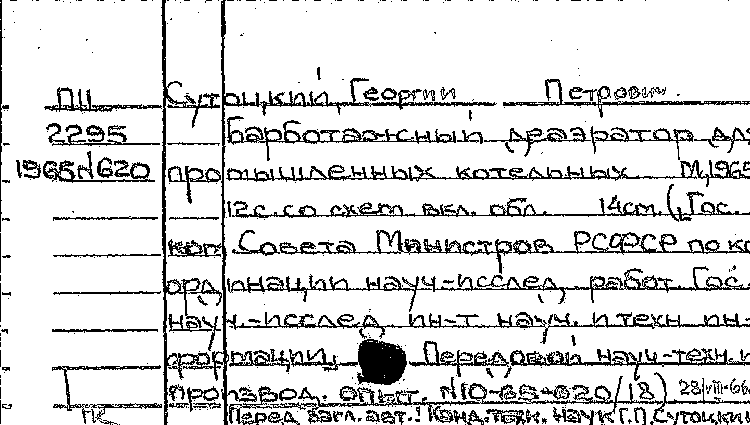 ПII Сутоцкий, Георгий Петрович.
2295 Барботажный деаэратор для
1965№620 промышленных котельных М, 1965
12с. со схем вкл. обл. 14см. (Гос.
ком. Совета Министров РСФСР по ко
ординации науч-исслед. работ. Гос.
науч.-исслед. ин-т науч. и техн ин-
формации. Передовой науч-техн. и
производ. опыт. №10-65-620/18) 28/VIII-66
ГК Перед загл. авт.: Канд. техн. наук Г.П. Сутоцкий